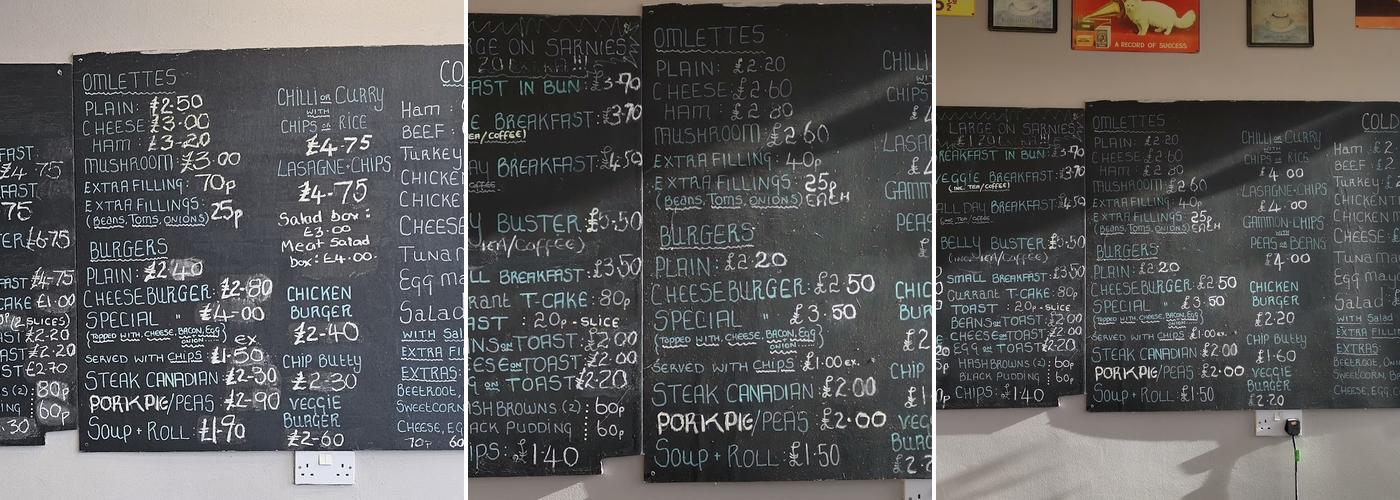 FAST
£4.75
FAST
75
TER £6.75
£4-75
CAKE £1.00
(2 SLICES)
AST £2-20
AST £2-20
£2.70
S (2): 80p
ING : 60p
.30
OMLETTES
PLAIN: £2.50
CHEESE £3.00
HAM : £3-20
MUSHROOM: £3.00
EXTRA FILLINGS: 70p
(BEANS, TOMS, ONIONS) 25p
BURGERS
PLAIN: £2.40
CHEESEBURGER: £2-80
SPECIAL " £4-00
(TOPPED WITH, CHEESE, BACON, EGG ONION)
SERVED WITH CHIPS ex £1.50
STEAK CANADIAN: £2-30
PORKPIE/PEAS £2-90
SOUP + ROLL: £1.90
CHILLI OR CURRY
WITH
CHIPS OR RICE
£4-75
LASAGNE-CHIPS
£4-75
Salad box:
£3.00
Meat Salad
box: £4.00.
CHICKEN
BURGER
£2-40
CHIP Butty
£2-30
VEGGIE
BURGER
£2-60
CO
HAM :
BEEF :
TURKEY
CHICKEN
CHICKE
CHEESE
TUNA
EGG MA
SALAD
WITH SAL
EXTRA FIL
EXTRAS:
BEETROOT,
SWEETCORN
CHEESE, EG
70p 60
RGE ON SARNIES
20p EXTRA!!!
FAST IN BUN: £3-70
E BREAKFAST: £3.70
(TEA/COFFEE)
AY BREAKFAST: £4.50
COFFEE
Y BUSTER £5.50
TEA/COFFEE)
LL BREAKFAST: £3.50
RRANT T-CAKE: 80p
AST : 20p - SLICE
NS ON TOAST: £2.00
ESE ON TOAST £2.00
G ON TOAST £2.20
SH BROWNS (2) : 60p
ACK PUDDING : 60p
IPS: £1.40
OMLETTES
PLAIN: £2.20
CHEESE: £2.60
HAM : £2.80
MUSHROOM: £2.60
EXTRA FILLINGS: 40p
(BEANS, TOMS, ONIONS) 25p EACH
BURGERS
PLAIN: £2.20
CHEESEBURGER: £2.50
SPECIAL " £3.50
(TOPPED WITH, CHEESE, BACON, EGG ONION)
SERVED WITH CHIPS £1.00 ex.
STEAK CANADIAN: £2.00
PORKPIE/PEAS : £2.00
SOUP + ROLL: £1.50
CHILLI
CHIPS
£4
LASAG
£4
GAMM
PEAS
£
CHIC
BUR
£2
CHIP
£1
VEGG
BURG
£2.2
A RECORD OF SUCCESS
LARGE ON SARNIES
£1.20 EXTRA!!!
REAKFAST IN BUN: £3-70
VEGGIE BREAKFAST: £3.70
(INC. TEA/COFFEE)
ALL DAY BREAKFAST: £4.50
INC TEA/COFFEE
BELLY BUSTER £5.50
(INC TEA/COFFEE)
SMALL BREAKFAST: £3.50
CURRANT T-CAKE: 80p
TOAST : 20p - SLICE
BEANS ON TOAST: £2.00
CHEESE ON TOAST: £2.00
EGG ON TOAST £2.20
HASH BROWNS (2) : 60p
BLACK PUDDING : 60p
CHIPS: £1.40
OMLETTES
PLAIN: £2.20
CHEESE: £2.60
HAM : £2.80
MUSHROOM: £2.60
EXTRA FILLINGS: 40p
(BEANS, TOMS, ONIONS) 25p EACH
BURGERS
PLAIN: £2.20
CHEESEBURGER: £2.50
SPECIAL " £3.50
(TOPPED WITH, CHEESE, BACON, EGG ONION)
SERVED WITH CHIPS £1.00 ex.
STEAK CANADIAN: £2.00
PORKPIE/PEAS : £2.00
SOUP + ROLL: £1.50
CHILLI OR CURRY
WITH
CHIPS OR RICE
£4.00
LASAGNE-CHIPS
£4.00
GAMMON-CHIPS
WITH
PEAS OR BEANS
£4.00
CHICKEN
BURGER
£2.20
CHIP Butty
£1.60
VEGGIE
BURGER
£2.20
COLD
HAM : £2
BEEF : £2
TURKEY : £
CHICKEN T
CHICKEN
CHEESE : £
TUNA MA
EGG MA
SALAD
WITH SALAD
EXTRA FI
EXTRAS:
BEETROOT,
SWEETCORN
CHEESE, EGG